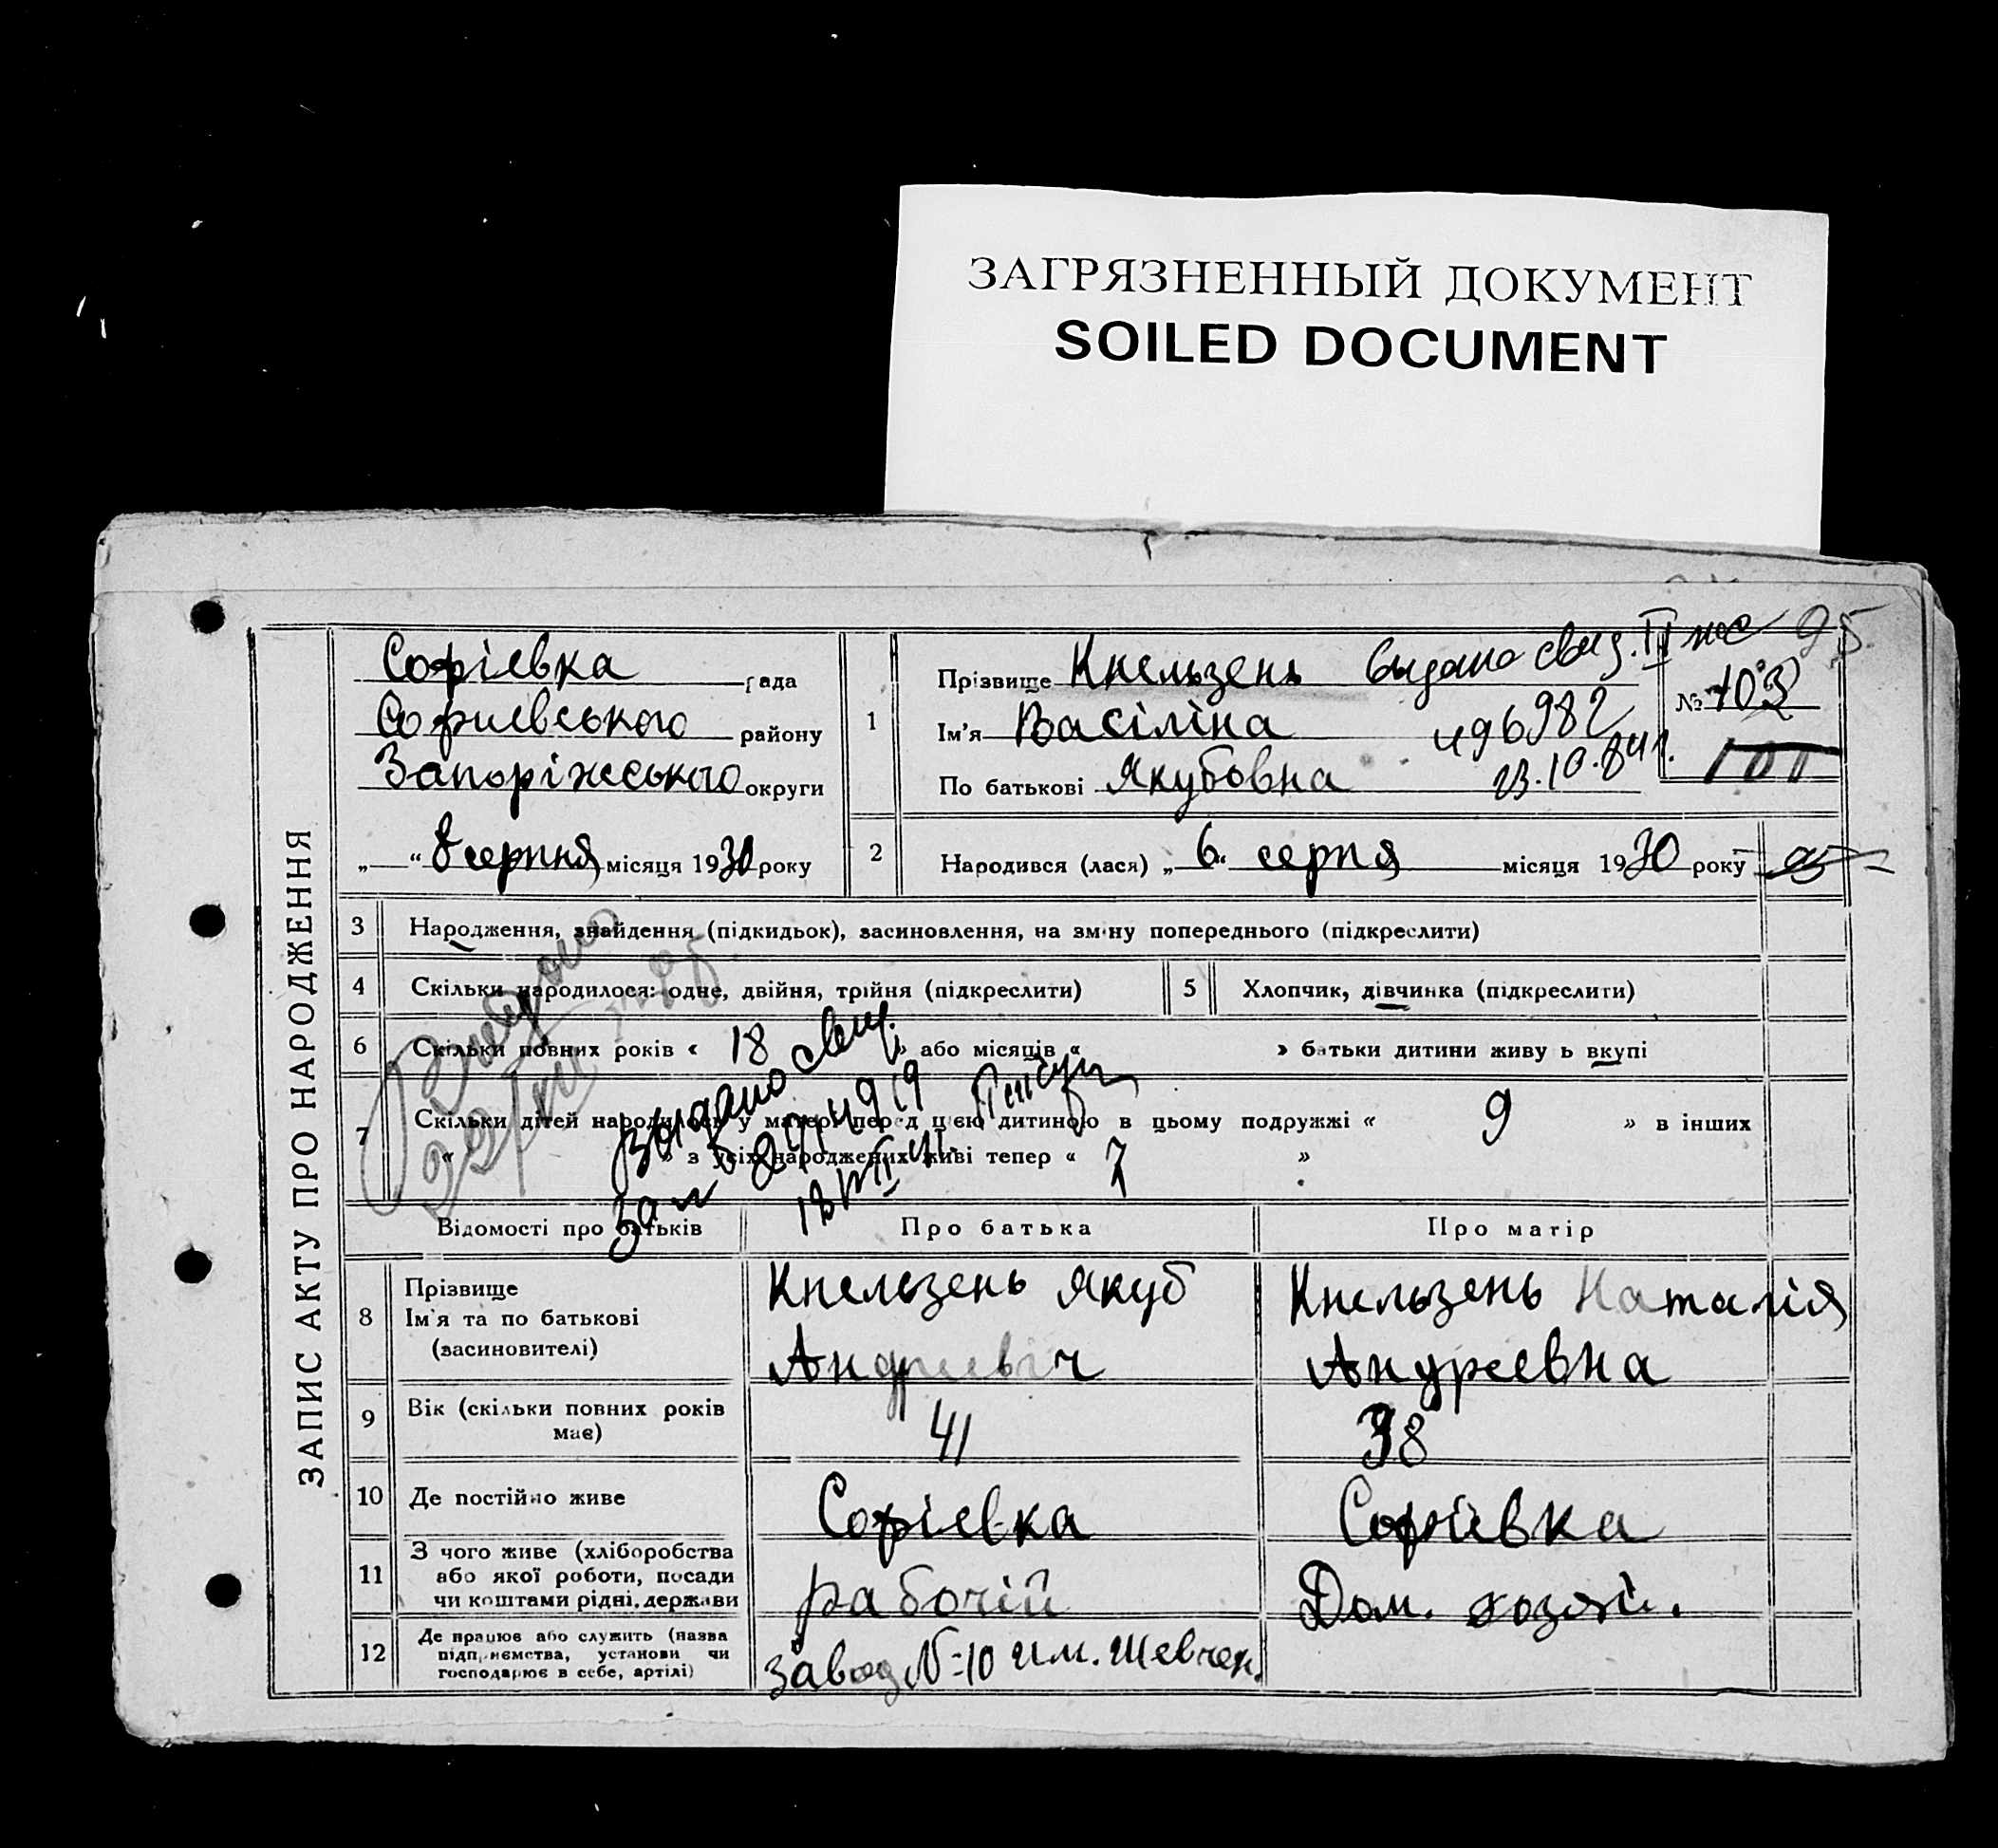 ЗАГРЯЗНЕННЫЙ ДОКУМЕНТ
SOILED DOCUMENT
ЗАПИС АКТУ ПРО НАРОДЖЕННЯ
Софіевка рада
Софиевського району
Запоріжського округи
„ “ 8 серпня місяця 1930 року
1
Прізвище Кнельзень
Ім'я Васіліна
По батькові Якубовна
выдано свид. II
496982
23.10.
95
№ 103
101
2 Народився (лася) „ 6 “ серпя місяця 1930 року 95
3 Народження, знайдення (підкидьок), засиновлення, на зміну попереднього (підкреслити)
4 Скільки народилося: одне, двійня, трійня (підкреслити)
5 Хлопчик, дівчинка (підкреслити)
6 Скільки повних років « 18 » або місяців « » батьки дитини живуть вкупі
7 Скільки дітей народилось у матері перед цією дитиною в цьому подружжі « 9 » в інших
« » з усіх народжених живі тепер « 7 »
Выдано свид.
Відомості про батьків Про батька Про матір
8 Прізвище
Ім'я та по батькові
(засиновителі)
Кнельзень Якуб
Андриевіч
Кнельзень Наталія
Андреевна
9 Вік (скільки повних років має) 41 38
10 Де постійно живе Софіевка Софіевка
11 З чого живе (хліборобства
або якої роботи, посади
чи коштами рідні, держави
рабочій Дом. хозяй.
12 Де працює або служить (назва
підприємства, установи чи
господарює в себе, артілі)
завод №10 им. Шевчен.